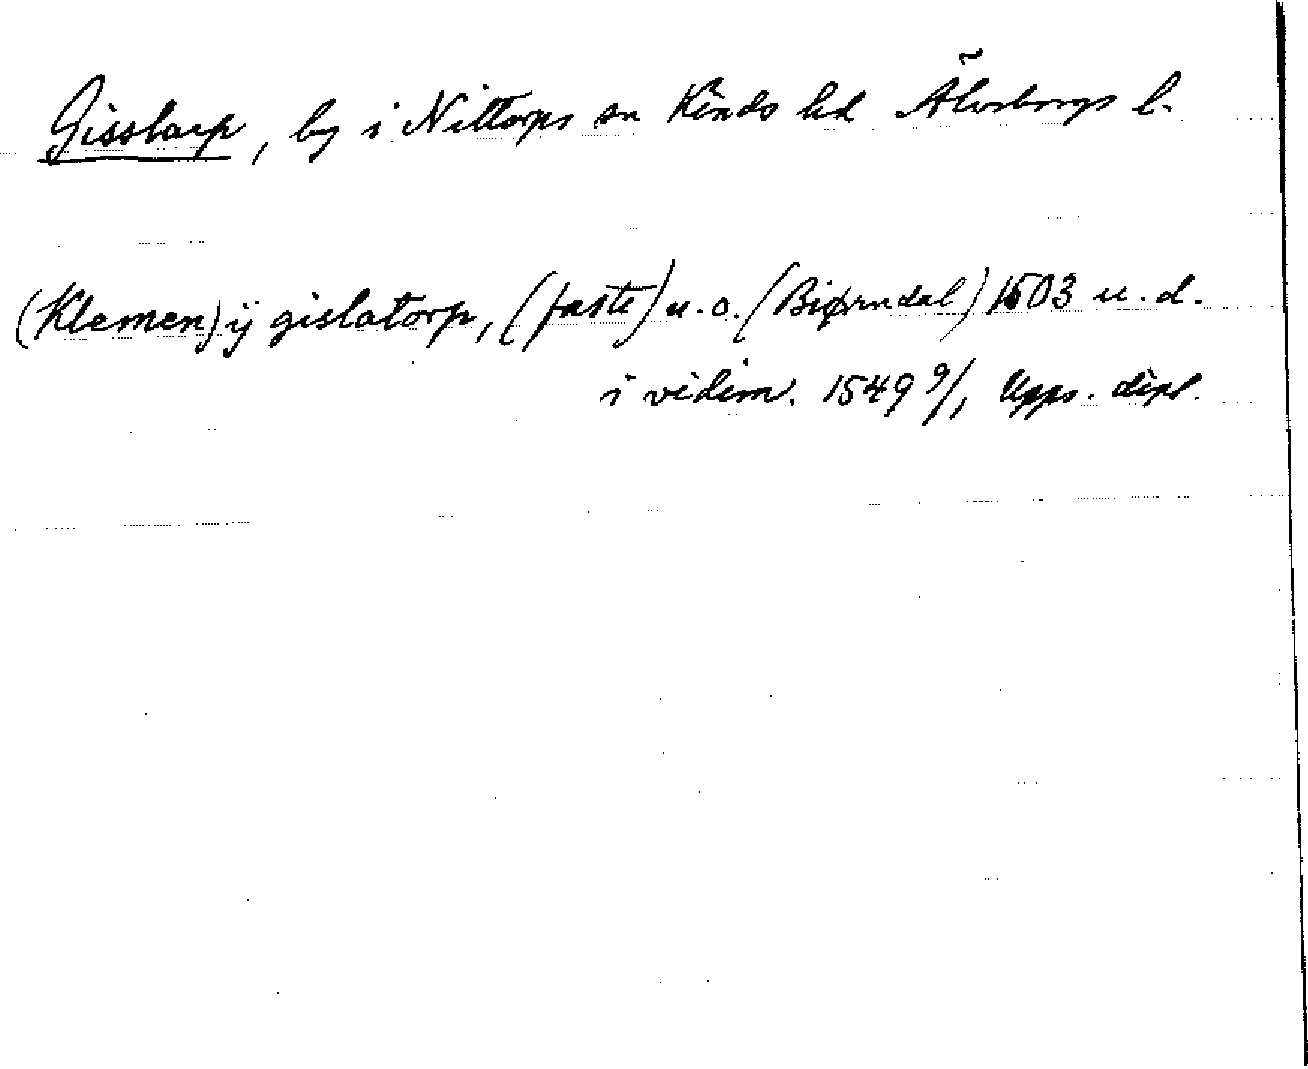 Gisslarp, by i Nittorps sn Kinds hd Älvsborgs l.
(Klemen) ij gislatorp, (faste) u.o. (Biørndal) 1503 u.d.
i vidim. 1549 9/1 Upps. dipl.